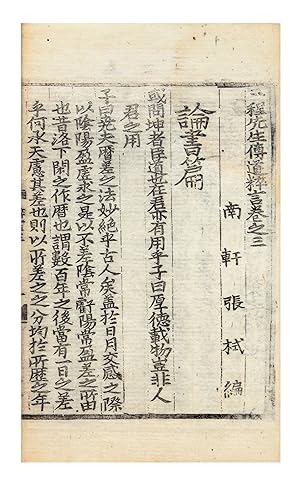 二程先生傳道粹言卷之三
南軒張栻編
論書篇
或問地者厚道也在君亦有用乎子曰厚德載物豈非人
君之用
子曰堯夫曆差之法妙絶乎古人矣盖於日月交感之際
以陰陽盈虛求之是以不差陰常虧陽常盈差之所由
也昔洛下閎之作曆也謂數百年之後當有一日之差
乎何承天慮其差也則以所差之分均於所曆之年